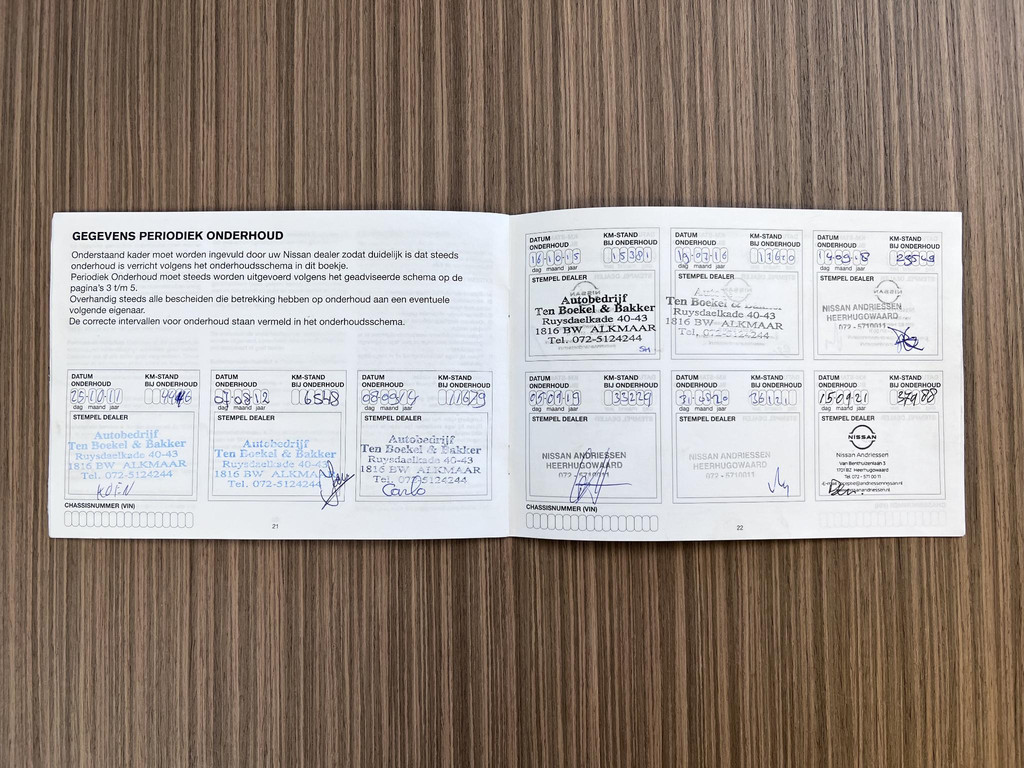 GEGEVENS PERIODIEK ONDERHOUD
Onderstaand kader moet worden ingevuld door uw Nissan dealer zodat duidelijk is dat steeds
onderhoud is verricht volgens het onderhoudsschema in dit boekje.
Periodiek Onderhoud moet steeds worden uitgevoerd volgens het geadviseerde schema op de
pagina's 3 t/m 5.
Overhandig steeds alle bescheiden die betrekking hebben op onderhoud aan een eventuele
volgende eigenaar.
De correcte intervallen voor onderhoud staan vermeld in het onderhoudsschema.
DATUM
ONDERHOUD
KM-STAND
BIJ ONDERHOUD
25-10-11
dag maand jaar
STEMPEL DEALER
Autobedrijf
Ten Boekel & Bakker
Ruysdaelkade 40-43
1816 BW ALKMAAR
Tel. 072-5124244
KOEN
DATUM
ONDERHOUD
KM-STAND
BIJ ONDERHOUD
07-08-12
6548
dag maand jaar
STEMPEL DEALER
Autobedrijf
Ten Boekel & Bakker
Ruysdaelkade 40-43
1816 BW ALKMAAR
Tel. 072-5124244
DATUM
ONDERHOUD
KM-STAND
BIJ ONDERHOUD
08-09-14
11629
dag maand jaar
STEMPEL DEALER
Autobedrijf
Ten Boekel & Bakker
Ruysdaelkade 40-43
1816 BW ALKMAAR
Tel. 072-5124244
Carlo
CHASSISNUMMER (VIN)
21
DATUM
ONDERHOUD
KM-STAND
BIJ ONDERHOUD
16-10-15
15381
dag maand jaar
STEMPEL DEALER
Autobedrijf
Ten Boekel & Bakker
Ruysdaelkade 40-43
1816 BW ALKMAAR
Tel. 072-5124244
DATUM
ONDERHOUD
KM-STAND
BIJ ONDERHOUD
19-07-16
17620
dag maand jaar
STEMPEL DEALER
Ten Boekel & Bakker
Ruysdaelkade 40-43
1816 BW ALKMAAR
Tel. 072-5124244
DATUM
ONDERHOUD
KM-STAND
BIJ ONDERHOUD
28549
dag maand jaar
STEMPEL DEALER
NISSAN ANDRIESSEN
HEERHUGOWAARD
072 - 5710011
DATUM
ONDERHOUD
KM-STAND
BIJ ONDERHOUD
05-09-19
33229
dag maand jaar
STEMPEL DEALER
NISSAN ANDRIESSEN
HEERHUGOWAARD
DATUM
ONDERHOUD
KM-STAND
BIJ ONDERHOUD
31-08-20
36121
dag maand jaar
STEMPEL DEALER
NISSAN ANDRIESSEN
HEERHUGOWAARD
DATUM
ONDERHOUD
KM-STAND
BIJ ONDERHOUD
15-09-21
37988
dag maand jaar
STEMPEL DEALER
NISSAN
Nissan Andriessen
Van Benthuizenlaan 3
1701 BZ Heerhugowaard
Tel. 072 - 571 00 11
CHASSISNUMMER (VIN)
22